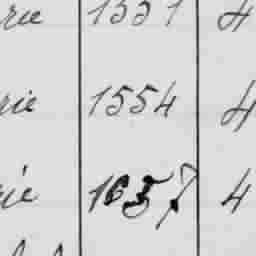 rie 1551 4
rie 1554 4
rie 1657 4